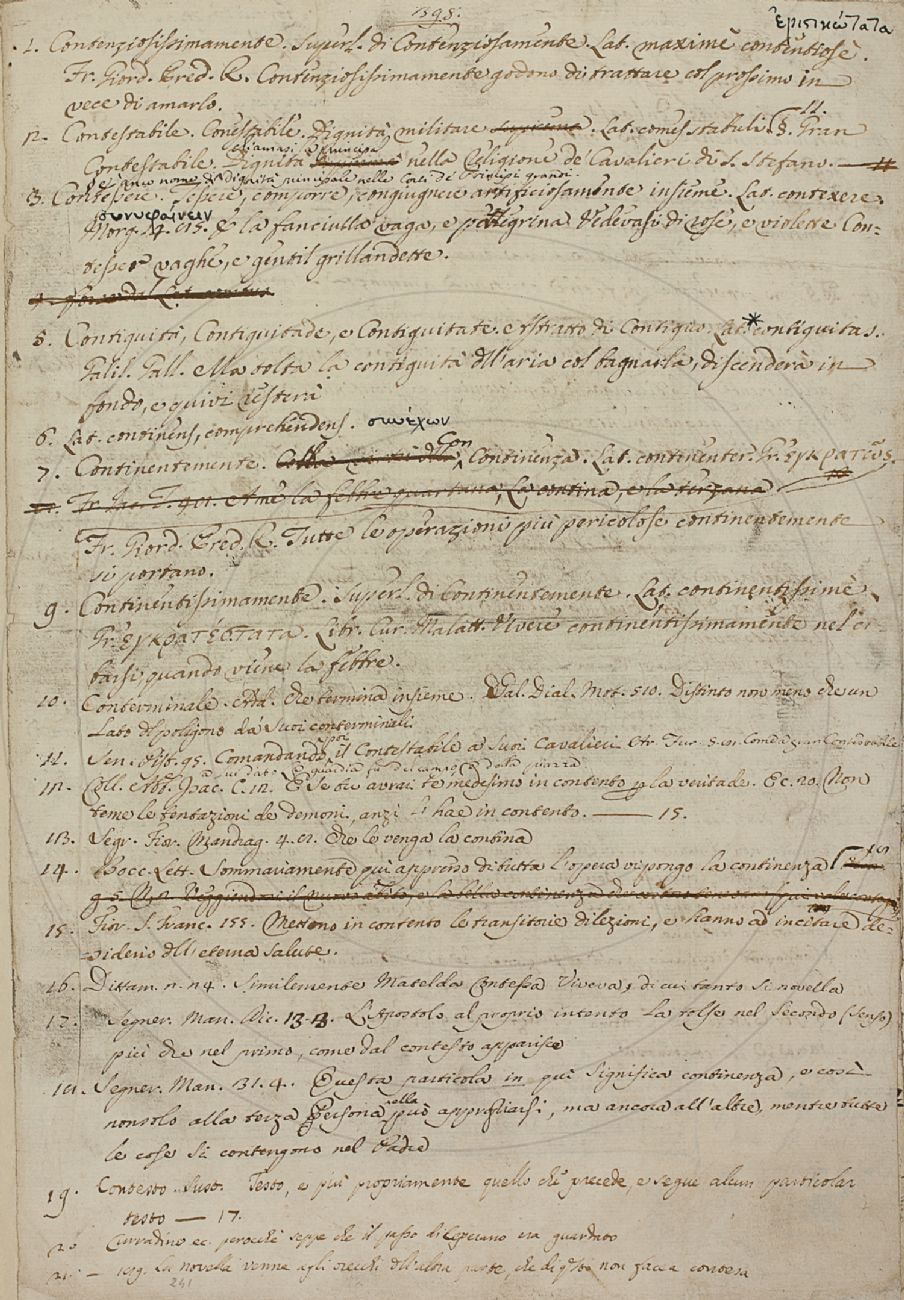 398.
ἐριστικώτατα
1. Contenziosissimamente. Superl. di Contenziosamente. Lat. maximè contentiosè.
Fr. Giord. Pred. R. Contenziosissimamente godono di trattare col prossimo in
vece di amarlo.
2. Contestabile. Conestabile. Dignità militare suprema. Lat. comes stabuli. §. Gran 11.
Contestabile. Dignità principale nella Religione de' Cavalieri di S. Stefano. — 11
è anco nome di dignità principale nelle Corti de' Principi grandi.
3. Contessere. Tessere, comporre, congiugnere artificiosamente insieme. Lat. contexere.
συνυφαίνειν
Morg. 14. 85. E la fanciulla vaga, e pellegrina Vedevasi di rose, e violette Con-
tesser vaghe, e gentil grillandette.
5. Contiguità, Contiguitade, e Contiguitate. Astratto di Contiguo. Lat. contiguitas.
Galil. Gall. Ella tolta la contiguità dell'aria col bagnarla, discenderà in
fondo, e quivi resterà
6. Lat. continens, comprehendens. συνέχων
7. Continentemente. Con Continenza. Lat. continenter. Gr. ἐγκρατῶς.
Fr. Iac. T. A me la febbre quartana, La contina, e la terzana
Fr. Giord. Pred. R. Tutte le operazioni più pericolose continentemente
si portano.
9. Continentissimamente. Superl. di Continentemente. Lat. continentissimè.
Gr. ἐγκρατέστατα. Libr. Cur. Malatt. Vivere continentissimamente nel ci-
barsi, quando viene la febbre.
10. Conterminale. Add. Che termina insieme. Gal. Dial. Mot. 510. Distinto non meno che un
Lato del poligono da' suoi conterminali.
11. Sen. Pist. 95. Comandando il Contestabile a' suoi Cavalieri
12. Coll. Ab. Isac. C. 12. E se tu avrai te medesimo in contento per la veritade. E c. 20. Non
teme le tentazioni de' demoni, anzi le hae in contento. — 15.
13. Segr. Fior. Mandrag. 4. 2. Che le venga la contina
14. Bocc. Lett. Sommariamente quì appresso di tutta l'opera vi pongo la continenza
15. Fior. S. Franc. 155. Mettono in contento le transitorie dilezioni, e stanno a incitare de-
siderio dell'eterna salute.
16. Dittam. 2. 24. Similemente Matelda Contessa Viveva, di cui tanto si novella
17. Segner. Man. Dic. 13. 3. L'Apostolo al proprio intento la tolse nel Secondo (senso)
più che nel primo, come dal contesto apparisce
18. Segner. Man. 31. 4. Questa particola in quì significa continenza, e così
non solo alla terza Persona può ella appropriarsi, ma ancora all'altre, mentre tutte
le cose si contengono nel Padre
19. Contesto. Sust. Testo, e più propriamente quello che precede, e segue alcun particolar
testo — 17.
20 Curradino ec. perocchè seppe che il passo di Liguria era guardato
21 — 189. La novella venne agli orecchi dell'altra parte, che di q.sto non facea contesa
241